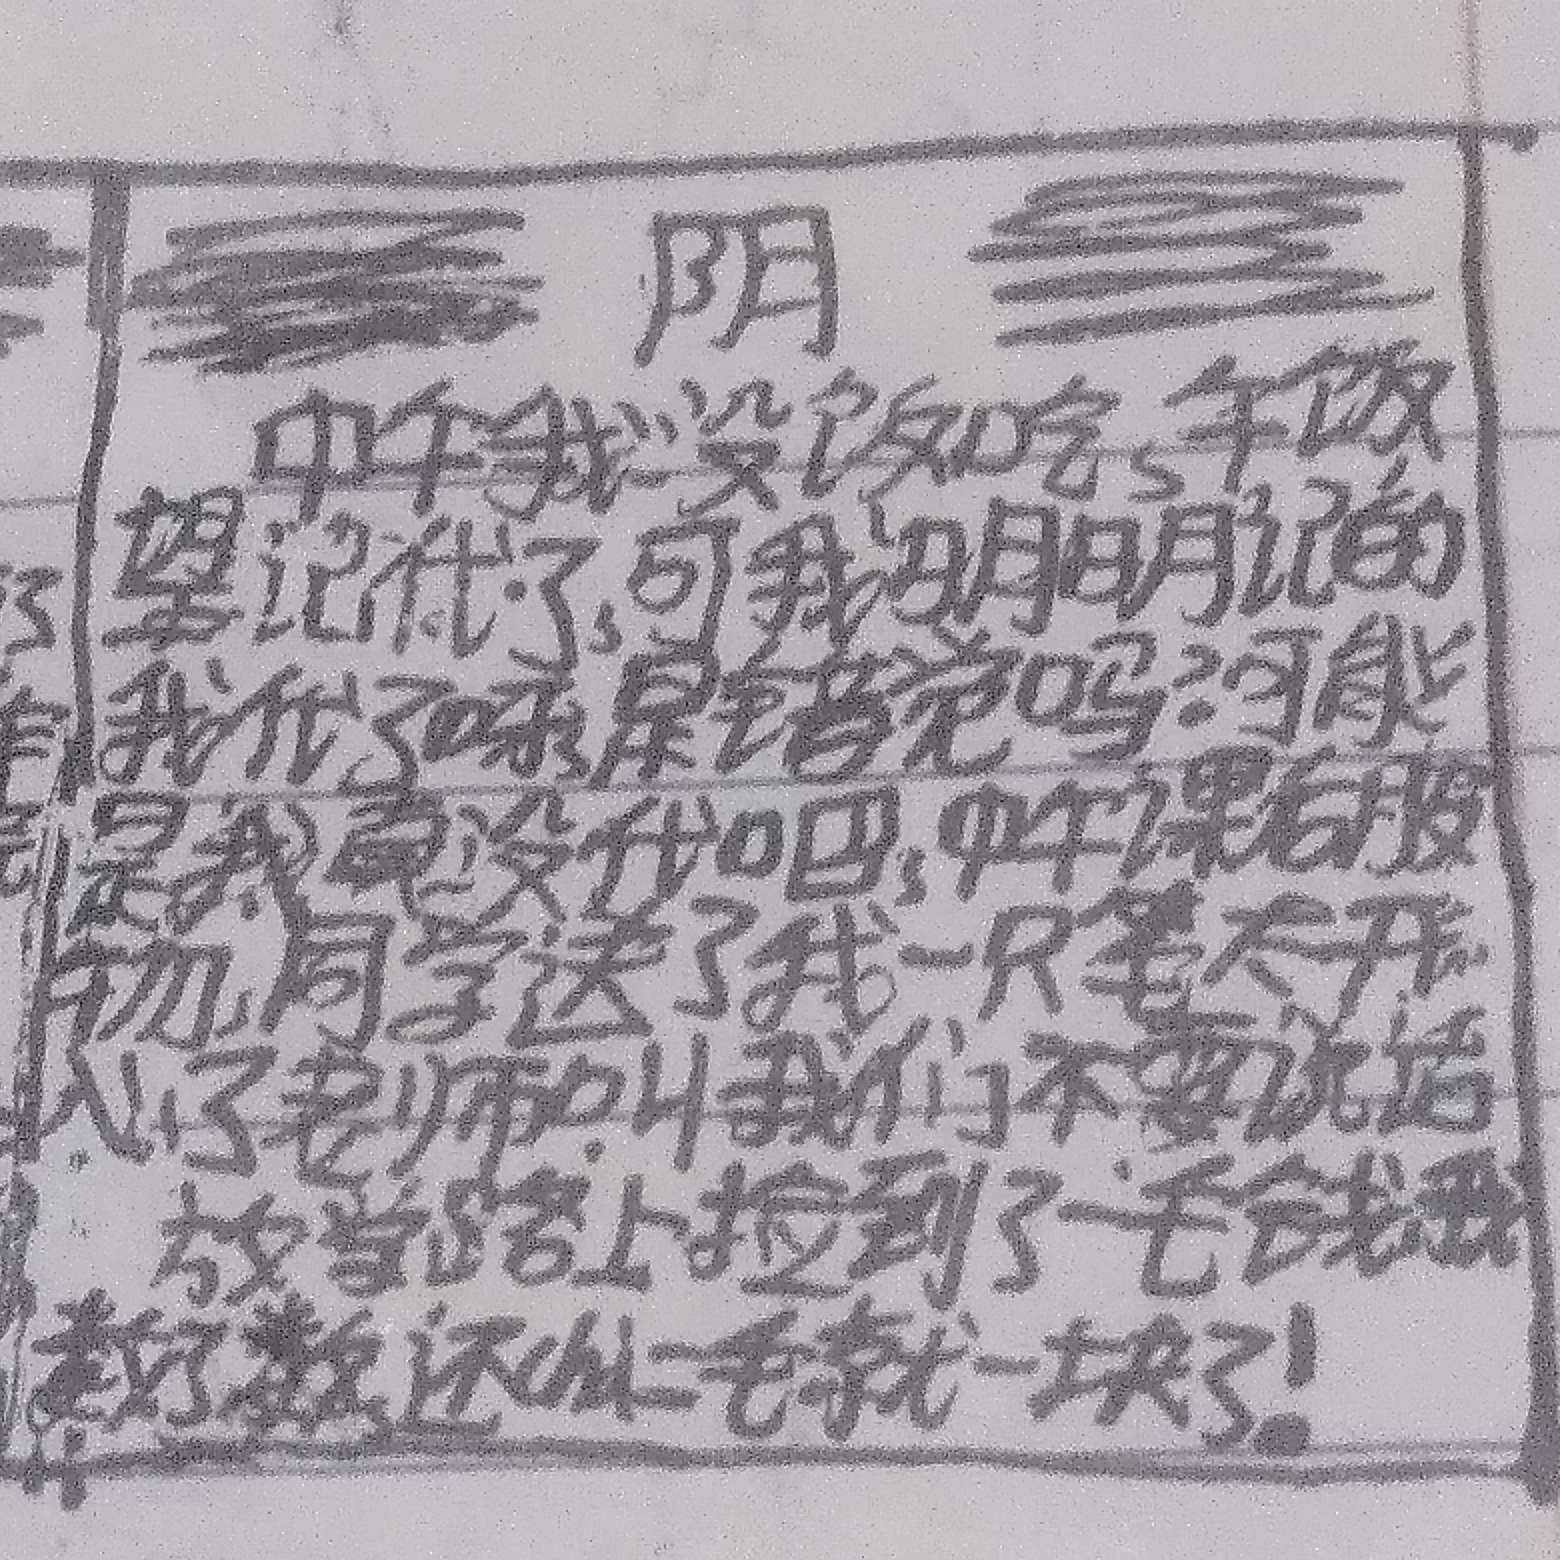 阴
中午我没饭吃,午饭
望记代了,可我明明明明记的
我代了哚,是错觉吗?可能
是我真没代口巴,中午课右股
物,同学送了我一只笔太开
心了老师叫我们不要说话
放学路上捡到了一毛钱我
数了数还
差二毛就一块了!